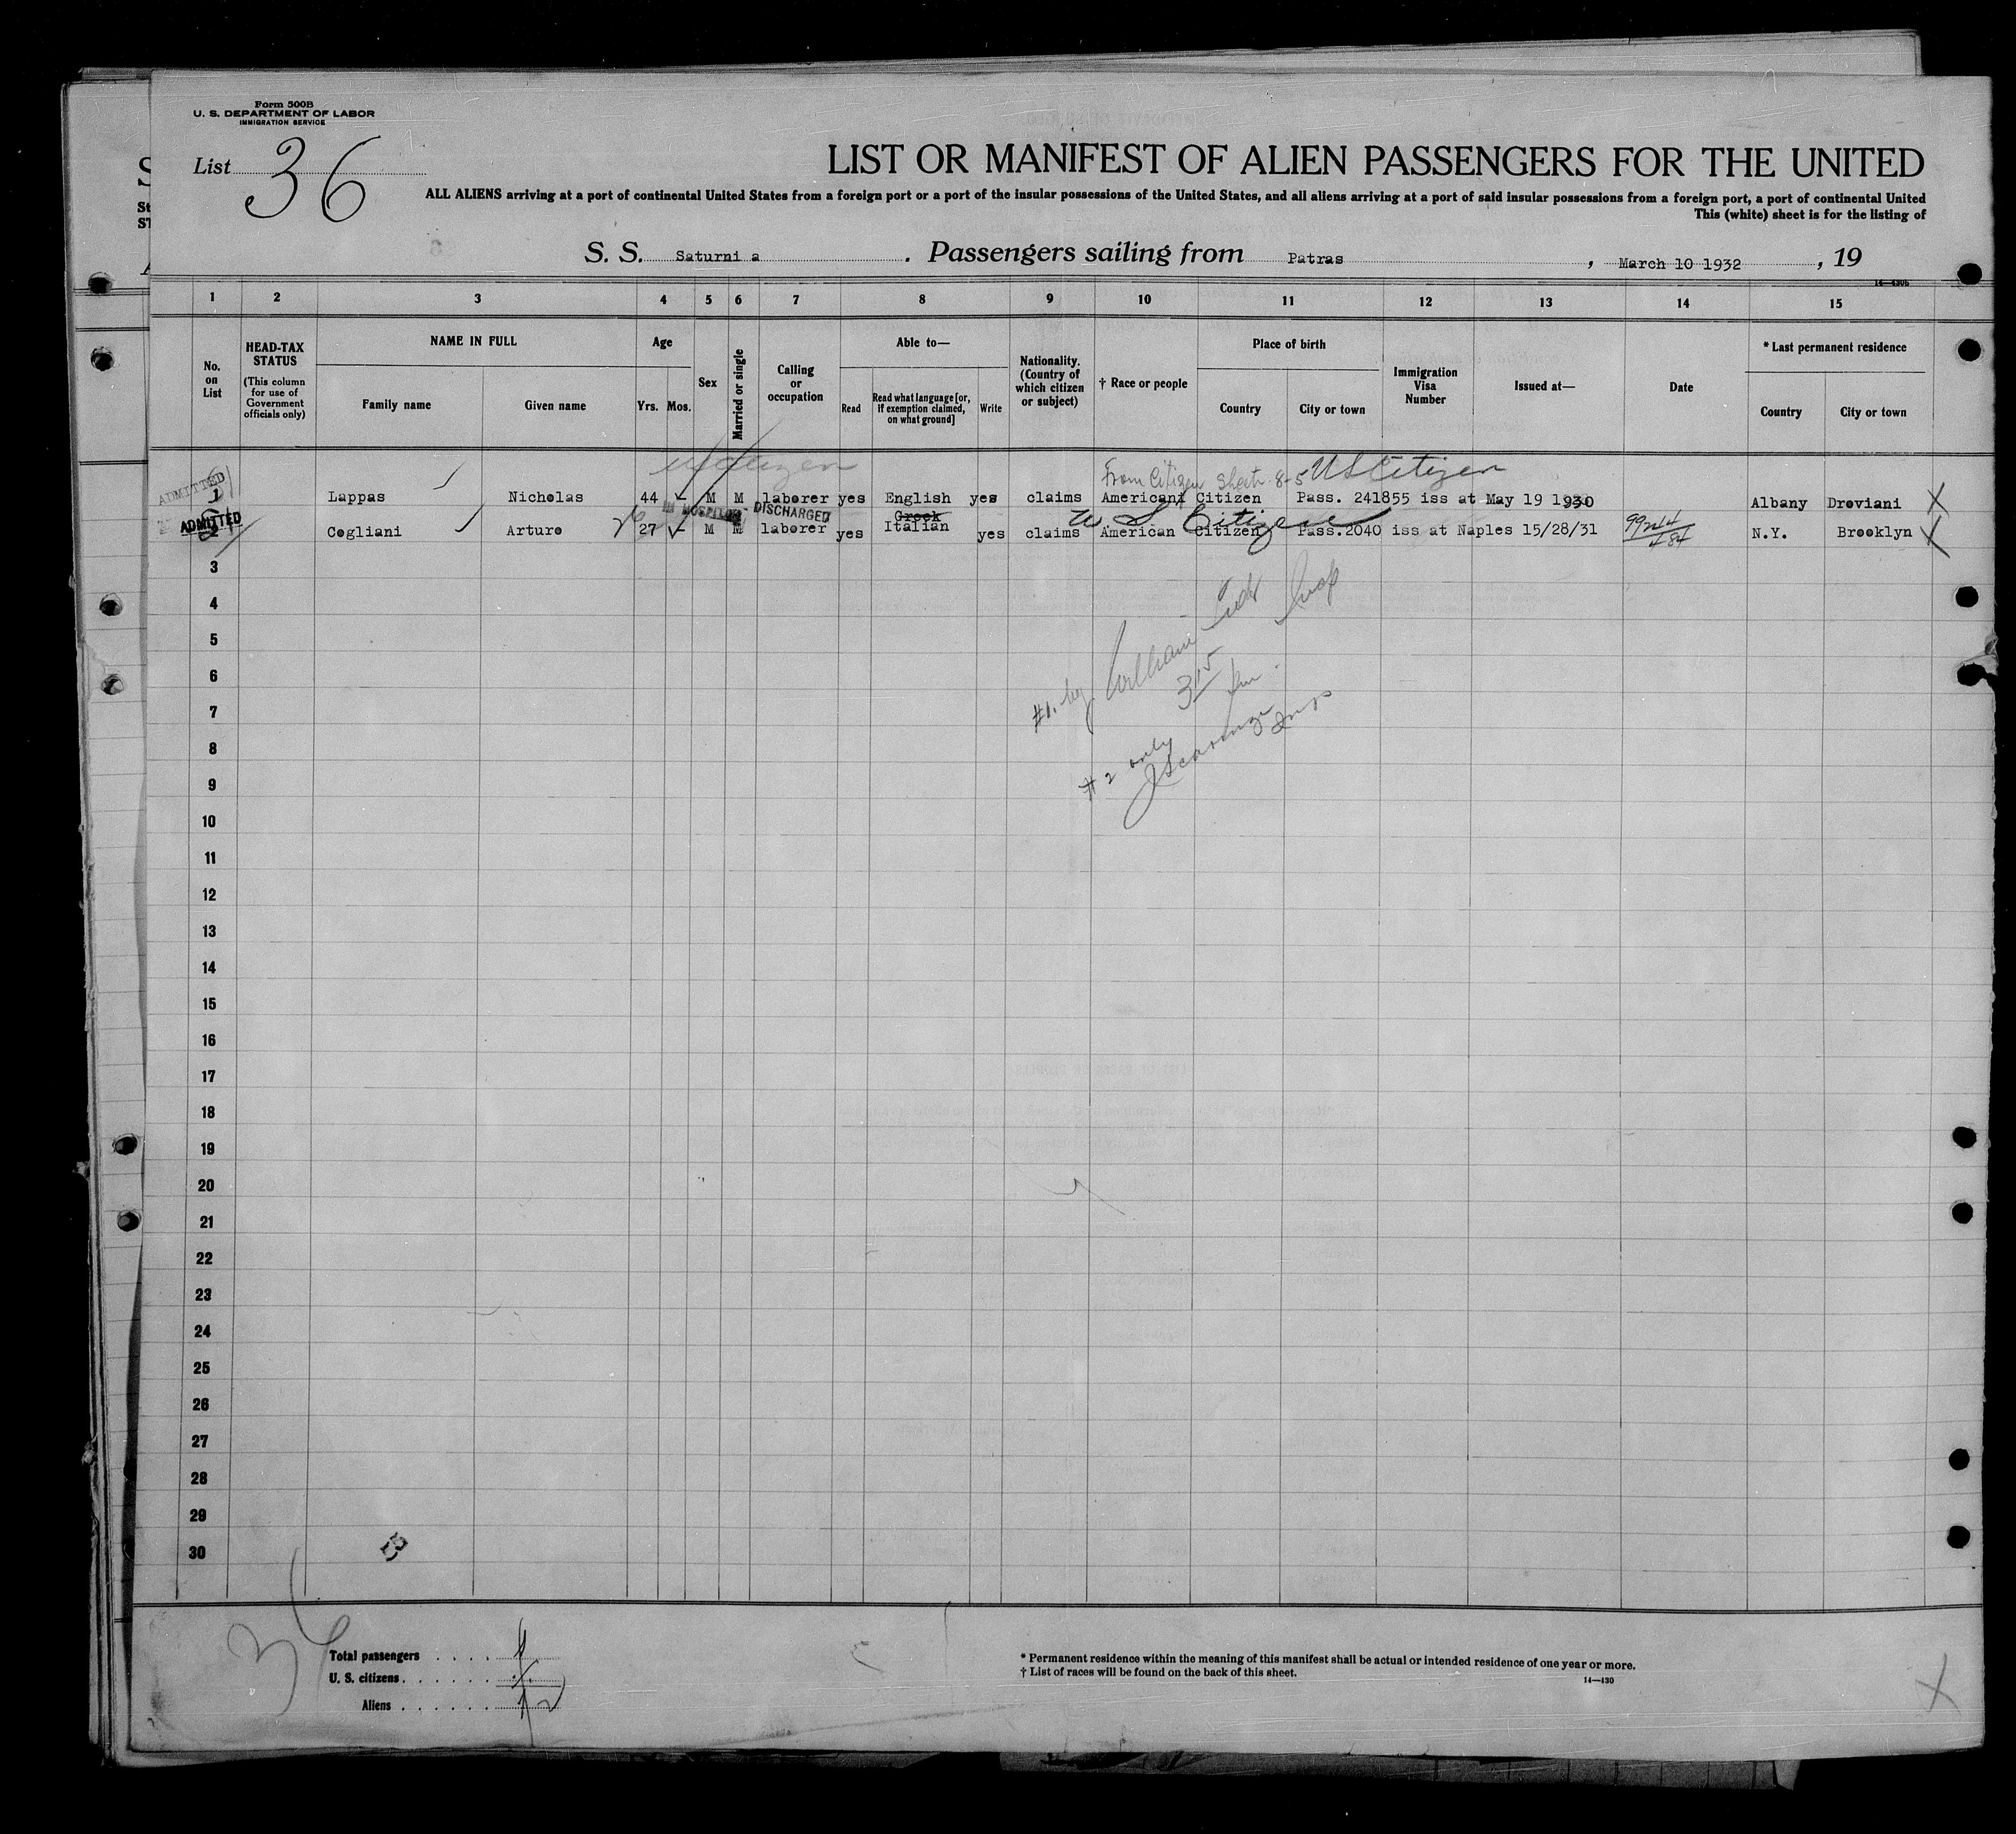 Form 500B
U. S. DEPARTMENT OF LABOR
IMMIGRATION SERVICE
List 36
LIST OR MANIFEST OF ALIEN PASSENGERS FOR THE UNITED
ALL ALIENS arriving at a port of continental United States from a foreign port or a port of the insular possessions of the United States, and all aliens arriving at a port of said insular possessions from a foreign port, a port of continental United
This (white) sheet is for the listing of
S. S. Saturni a . Passengers sailing from Patras , March 10 1932 , 19
14—430b
1 2 3 4 5 6 7 8 9 10 11 12 13 14 15
No. on List
HEAD-TAX STATUS (This column for use of Government officials only)
NAME IN FULL
Family name Given name
Age
Yrs. Mos.
Sex
Married or single
Calling or occupation
Able to—
Read Read what language [or, if exemption claimed, on what ground] Write
Nationality. (Country of which citizen or subject)
† Race or people
Place of birth
Country City or town
Immigration Visa Number
Issued at—
Date
* Last permanent residence
Country City or town
From Citizen Sheet 8-5 US Citizen
ADMITTED 1 Lappas Nicholas 44 - M M laborer yes English yes claims American Citizen Pass. 241855 iss at May 19 1930 Albany Droviani X
IN HOSPITAL DISCHARGED
Greek
U S Citizen
ADMITTED 2 Cogliani Arturo 27 M M laborer yes Italian yes claims American Citizen Pass.2040 iss at Naples 15/28/31 N.Y. Brooklyn X
3
4
5
6
7
8
9
10
11
12
13
14
15
16
17
18
19
20
21
22
23
24
25
26
27
28
29
30
#2 only
B
36
Total passengers
U. S. citizens
Aliens
* Permanent residence within the meaning of this manifest shall be actual or intended residence of one year or more.
† List of races will be found on the back of this sheet.
14—430
X